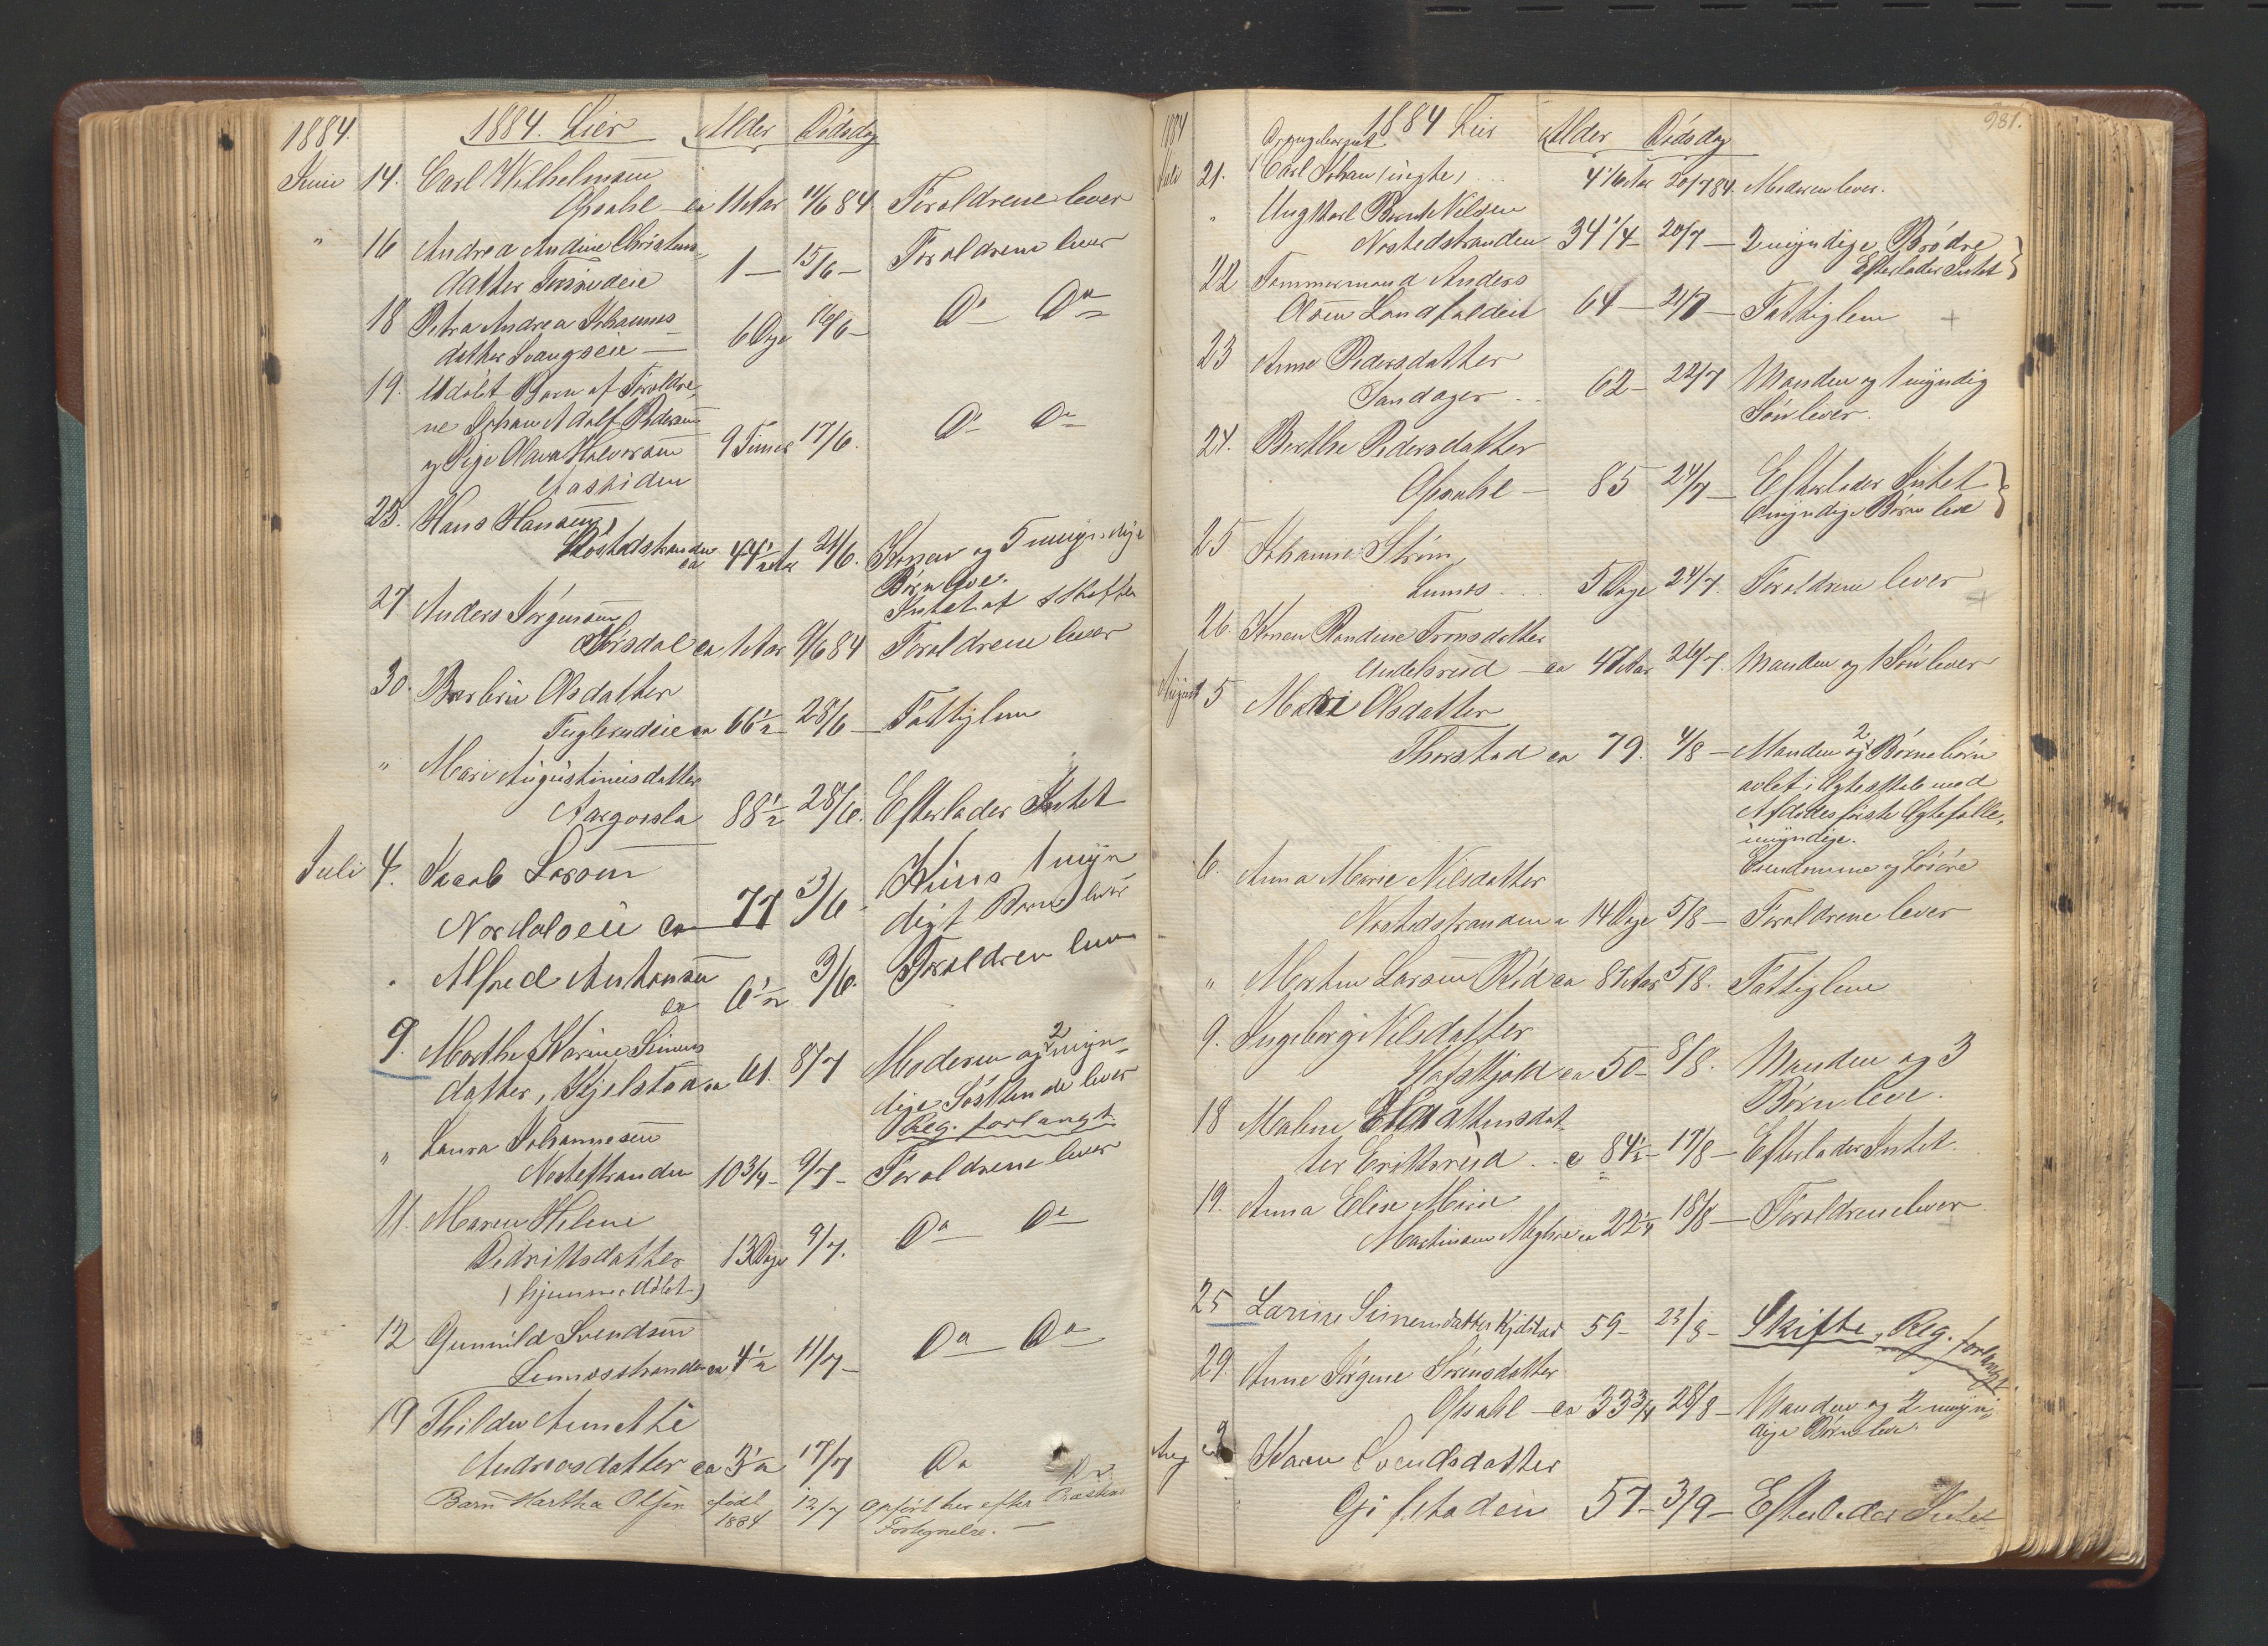 1884. 1884. Lier Alder Dödsdag
Juni 14. Carl Wilhelmsen
Opsahl ca 11 Aar 11/6 84. Forældrene lever
" 16 Andrea Andine Christens
datter 1 — 15/6 — Forældrene lever
18 Petra Andrea Johannes
datter 6 Dage 16/6 — Do Do
19. Udöbt Barn af Forældre
ne Johan Adolf Pedersen
og Pige Olava Halvorsen 9 Timer 17/6. Do Do
Aaskiden
23. Hans Hansen
Nöstedstranden ca 44 1/2 Aar 21/6. Konen og 5 myndige
Børn leve.
Intet at skifte
27. Anders Jörgensen
ca 1 Aar 9/6 84 Forældrene lever
30. Barbru Olsdatter
Fuglerudeie ca 66 1/2 28/6 — Fattiglem
" Mari Augustinusdatter
88 1/2 28/6. Efterlader Intet
Juli 4. Jacob Larsen
ca 77 3/6. Kuns 1 myn
digt Barn lever
" Alfred Antonsen
ca 6 1/2 3/6. Forældren leve
9. Marthe Karine Simens
datter, Kjelstad ca 61. 8/7 Moderen og 2 myn=
dige Söskende lever
Reg. forlangt.
" Laura Johannesen
Nöstestranden 10 3/4 — 9/7 — Forældrene lever
11. Maren Helene
Didriksdatter 13 Dage 9/7. Da Do
(hjemmedöbt)
12 Gunnild Svendsen
Linnesstranden ca 4 1/2 11/7 — Da Da
19 Thilda Annette
Andreasdatter ca 3 1/2 17/7 Da
Barn Martha Olsen födt 12/7 Opfört her efter Præstens
1884 Fortegnelse. —
931.
1884 1884 Lier Alder Dödsdag
Drengebarnet
Juli 21. Carl Johan (uægte) . . . 4 1/6 Aar 20/7 84. Moderen lever.
" Ungkarl Bernt Nilsen
Nöstedstranden 34 1/4 — 20/7 — 2 myndige Brödre
Efterlader Intet
22 Tømmermand Anders
Olsen Landfaldeie 64 — 21/7 — Fattiglem
23 Anne Pedersdatter
Sandager . . 62 — 22/7 Manden og 1 myndig
Sön lever.
24. Berthe Pedersdatter
Opsahl — 85 24/7 — Efterlader Intet
6 myndige Børn leve
25 Johanne Ström
Linnes . . . 5 Dage 24/7. Forældrene lever
26. Konen Randine Tronsdatter
ca 47 Aar 26/7. Manden og 1 Sön lever
August 5 Mari Olsdatter
Thorstad ca 79. 4/8 — Manden og 2 Børnebörn
avlet i Ægteskab med
Afdödes förste Ægtefælle,
umyndige.
Eiendomme og Lösöre
6. Anna Marie Nilsdatter
Nöstedstranden ca 14 Dage 5/8 — Forældrene lever
" Morten Larsen Röd ca 87 Aar 5/8. Fattiglem
9. Ingeborg Nilsdatter
ca 50 — 8/8. Manden og 3
Børn leve.
18 Malene
ter Eriksrud . . ca 84 1/2 — 17/8 — Efterlader Intet.
19. Anna Elise Marie
Martinsen ca 22 1/4 18/8 — Forældrene lever
25 Larine Simensdatter Kjelstad 59 — 23/8 — Skifte, Reg. forlangt.
29. Anne Jörgine Sörensdatter
Opsahl — ca 33 3/4 28/8 — Manden og 2 myn=
dige Børn leve.
Karen Svendsdatter
57 — 3/9 — Efterlader Intet